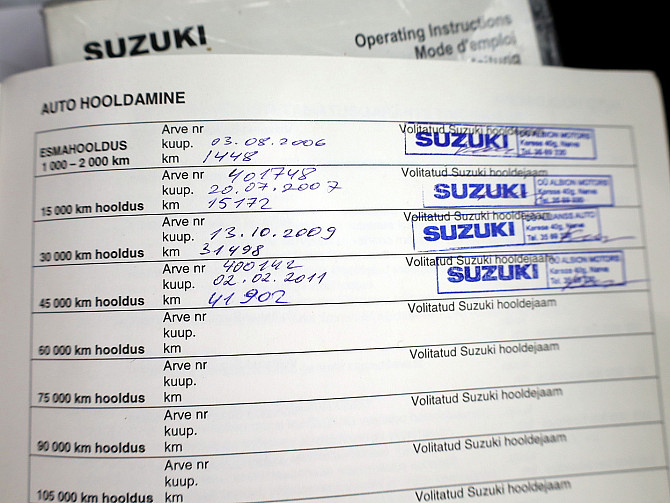 SUZUKI
Operating Instructions
Mode d'emploi
AUTO HOOLDAMINE
ESMAHOOLDUS
1 000 – 2 000 km
Arve nr
kuup. 03.08.2006
km 1448
Volitatud Suzuki hooldejaam
SUZUKI
OÜ ALBION MOTORS
Kerese 40g, Narva
15 000 km hooldus
Arve nr 401748
kuup. 20.07.2007
km 15172
Volitatud Suzuki hooldejaam
SUZUKI
OÜ ALBION MOTORS
Kerese 40g, Narva
30 000 km hooldus
Arve nr
kuup. 13.10.2009
km 31498
Volitatud Suzuki hooldejaam
SUZUKI
AUTO
Kerese 40g, Narva
45 000 km hooldus
Arve nr 400142
kuup. 02.02.2011
km 41902
Volitatud Suzuki hooldejaam
SUZUKI
OÜ ALBION MOTORS
Kerese 40g, Narva
60 000 km hooldus
Arve nr
kuup.
km
Volitatud Suzuki hooldejaam
75 000 km hooldus
Arve nr
kuup.
km
Volitatud Suzuki hooldejaam
90 000 km hooldus
Arve nr
kuup.
km
Volitatud Suzuki hooldejaam
105 000 km hooldus
Arve nr
kuup.
km
Volitatud Suzuki hooldejaam
Volitatud Suzuki hooldejaam